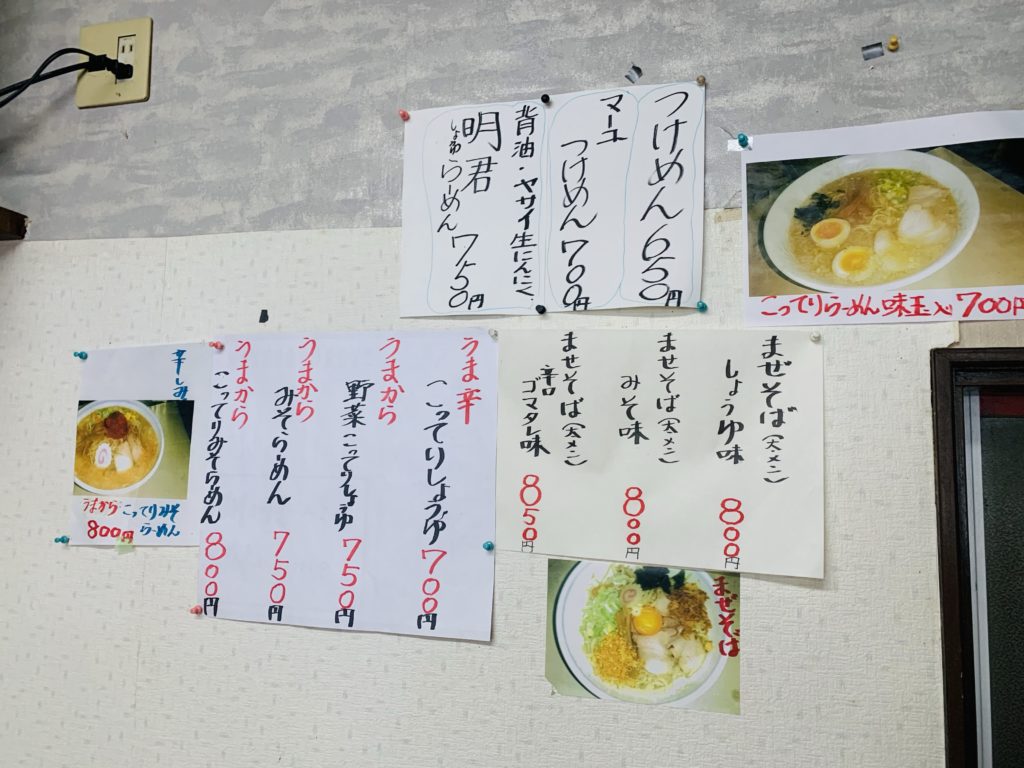 つけめん 650円
マーユ
つけめん 700円
背油・ヤサイ生にんにく
明君
しょうゆらーめん 750円
こってりらーめん味玉入り 700円
まぜそば(太メン)
しょうゆ味 800円
まぜそば(太メン)
みそ味 800円
まぜそば(太メン)
辛口
ゴマタレ味 850円
まぜそば
うま辛
こってりしょうゆ 700円
うまから
野菜こってりしょうゆ 750円
うまから
みそらーめん 750円
うまから
こってりみそらーめん 800円
辛しみ
うまから こってりみそ
らーめん
800円